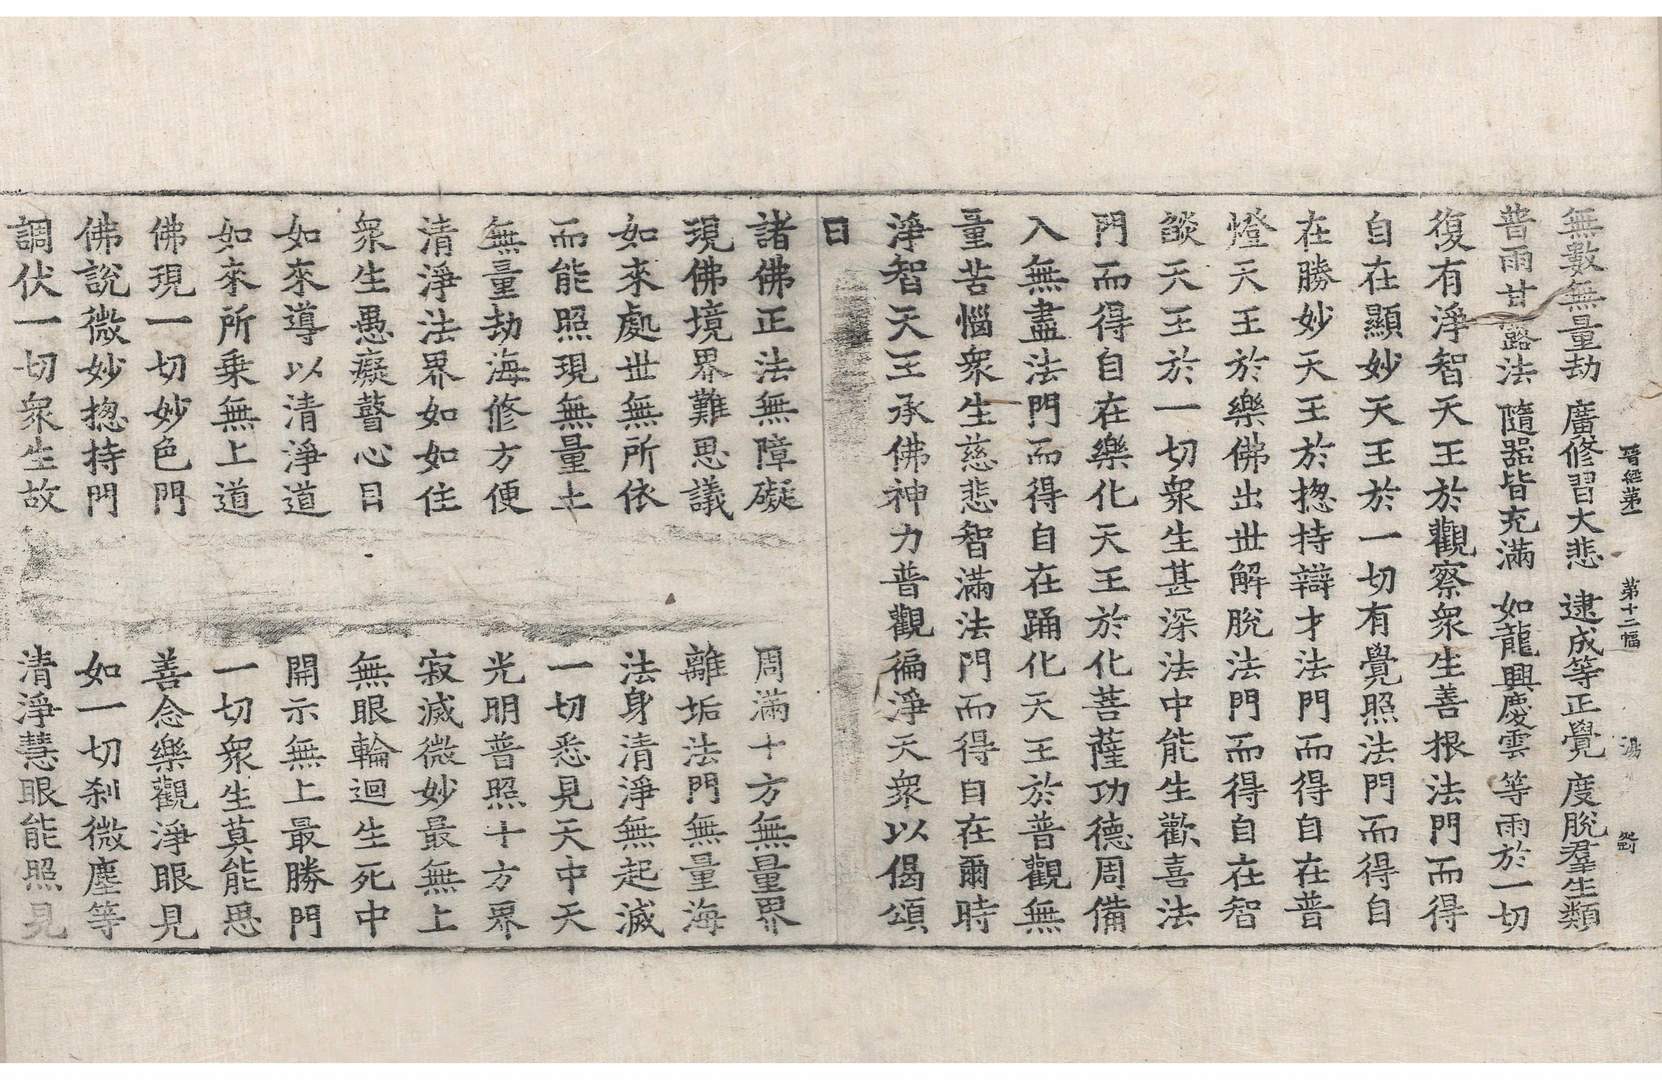 晉經第一 第十二幅 湯
無數無量劫 廣修習大悲 逮成等正覺 度脫羣生類
普雨甘露法 隨器皆充滿 如龍興慶雲 等雨於一切
復有淨智天王於觀察衆生善根法門而得
自在顯妙天王於一切有覺照法門而得自
在勝妙天王於揔持辯才法門而得自在普
燈天王於樂佛出世解脫法門而得自在智
燄天王於一切衆生甚深法中能生歡喜法
門而得自在樂化天王於化菩薩功德周備
入無盡法門而得自在踊化天王於普觀無
量苦惱衆生慈悲智滿法門而得自在爾時
淨智天王承佛神力普觀徧淨天衆以偈頌
曰
諸佛正法無障礙 周滿十方無量界
現佛境界難思議 離垢法門無量海
如來處世無所依 法身清淨無起滅
而能照現無量土 一切悉見天中天
無量劫海修方便 光明普照十方界
清淨法界如如住 寂滅微妙最無上
衆生愚癡瞽心目 無眼輪迴生死中
如來導以清淨道 開示無上最勝門
如來所乗無上道 一切衆生莫能思
佛現一切妙色門 善念樂觀淨眼見
佛說微妙揔持門 如一切刹微塵等
調伏一切衆生故 清淨慧眼能照見